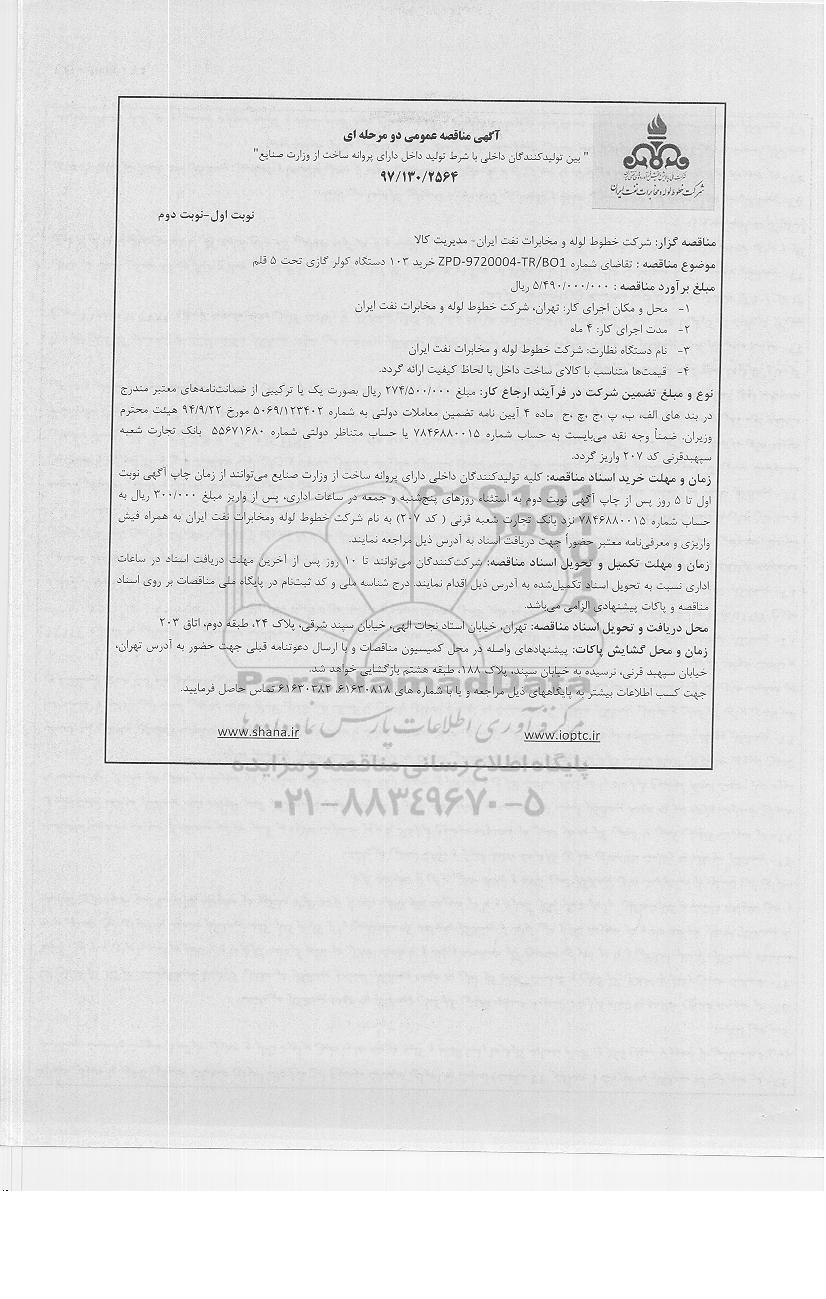 آگهی مناقصه عمومی دو مرحله ای
" بین تولیدکنندگان داخلی با شرط تولید داخل دارای پروانه ساخت از وزارت صنایع"
۹۷/۱۳۰/۲۵۶۴
شرکت خطوط لوله و مخابرات نفت ایران
نوبت اول-نوبت دوم
مناقصه گزار: شرکت خطوط لوله و مخابرات نفت ایران- مدیریت کالا
موضوع مناقصه : تقاضای شماره ZPD-9720004-TR/BO1 خرید ۱۰۳ دستگاه کولر گازی تحت ۵ قلم
مبلغ برآورد مناقصه : ۵/۴۹۰/۰۰۰/۰۰۰ ریال
۱- محل و مکان اجرای کار: تهران، شرکت خطوط لوله و مخابرات نفت ایران
۲- مدت اجرای کار: ۴ ماه
۳- نام دستگاه نظارت: شرکت خطوط لوله و مخابرات نفت ایران
۴- قیمت‌ها متناسب با کالای ساخت داخل با لحاظ کیفیت ارائه گردد.
نوع و مبلغ تضمین شرکت در فرآیند ارجاع کار: مبلغ ۲۷۴/۵۰۰/۰۰۰ ریال بصورت یک یا ترکیبی از ضمانت‌نامه‌های معتبر مندرج
در بند های الف، ب، پ ،ج ،چ ،ح ماده ۴ آیین نامه تضمین معاملات دولتی به شماره ۵۰۶۹/۱۲۳۴۰۲ مورخ ۹۴/۹/۲۲ هیئت محترم
وزیران. ضمناً وجه نقد می‌بایست به حساب شماره ۷۸۴۶۸۸۰۰۱۵ یا حساب متناظر دولتی شماره ۵۵۶۷۱۶۸۰ بانک تجارت شعبه
سپهبدقرنی کد ۲۰۷ واریز گردد.
زمان و مهلت خرید اسناد مناقصه: کلیه تولیدکنندگان داخلی دارای پروانه ساخت از وزارت صنایع می‌توانند از زمان چاپ آگهی نوبت
اول تا ۵ روز پس از چاپ آگهی نوبت دوم به استثناء روزهای پنج‌شنبه و جمعه در ساعات اداری، پس از واریز مبلغ ۳۰۰/۰۰۰ ریال به
حساب شماره ۷۸۴۶۸۸۰۰۱۵ نزد بانک تجارت شعبه قرنی ( کد ۲۰۷) به نام شرکت خطوط لوله ومخابرات نفت ایران به همراه فیش
واریزی و معرفی‌نامه معتبر حضوراً جهت دریافت اسناد به آدرس ذیل مراجعه نمایند.
زمان و مهلت تکمیل و تحویل اسناد مناقصه: شرکت‌کنندگان می‌توانند تا ۱۰ روز پس از آخرین مهلت دریافت اسناد در ساعات
اداری نسبت به تحویل اسناد تکمیل‌شده به آدرس ذیل اقدام نمایند. درج شناسه ملی و کد ثبت‌نام در پایگاه ملی مناقصات بر روی اسناد
مناقصه و پاکات پیشنهادی الزامی می‌باشد.
محل دریافت و تحویل اسناد مناقصه: تهران، خیابان استاد نجات الهی، خیابان سپند شرقی، پلاک ۲۴، طبقه دوم، اتاق ۲۰۳
زمان و محل گشایش پاکات: پیشنهادهای واصله در محل کمیسیون مناقصات و با ارسال دعوتنامه قبلی جهت حضور به آدرس تهران،
خیابان سپهبد قرنی، نرسیده به خیابان سپند، پلاک ۱۸۸، طبقه هشتم بازگشایی خواهد شد.
جهت کسب اطلاعات بیشتر به پایگاههای ذیل مراجعه و یا با شماره های ۶۱۶۳۰۸۱۸، ۶۱۶۳۰۳۸۲ تماس حاصل فرمایید.
www.ioptc.ir www.shana.ir
ParsNamadData
مرکز فرآوری اطلاعات پارس نماد داده‌ها
پایگاه اطلاع رسانی مناقصه و مزایده
۰۲۱-۸۸۳۴۹۶۷۰-۵